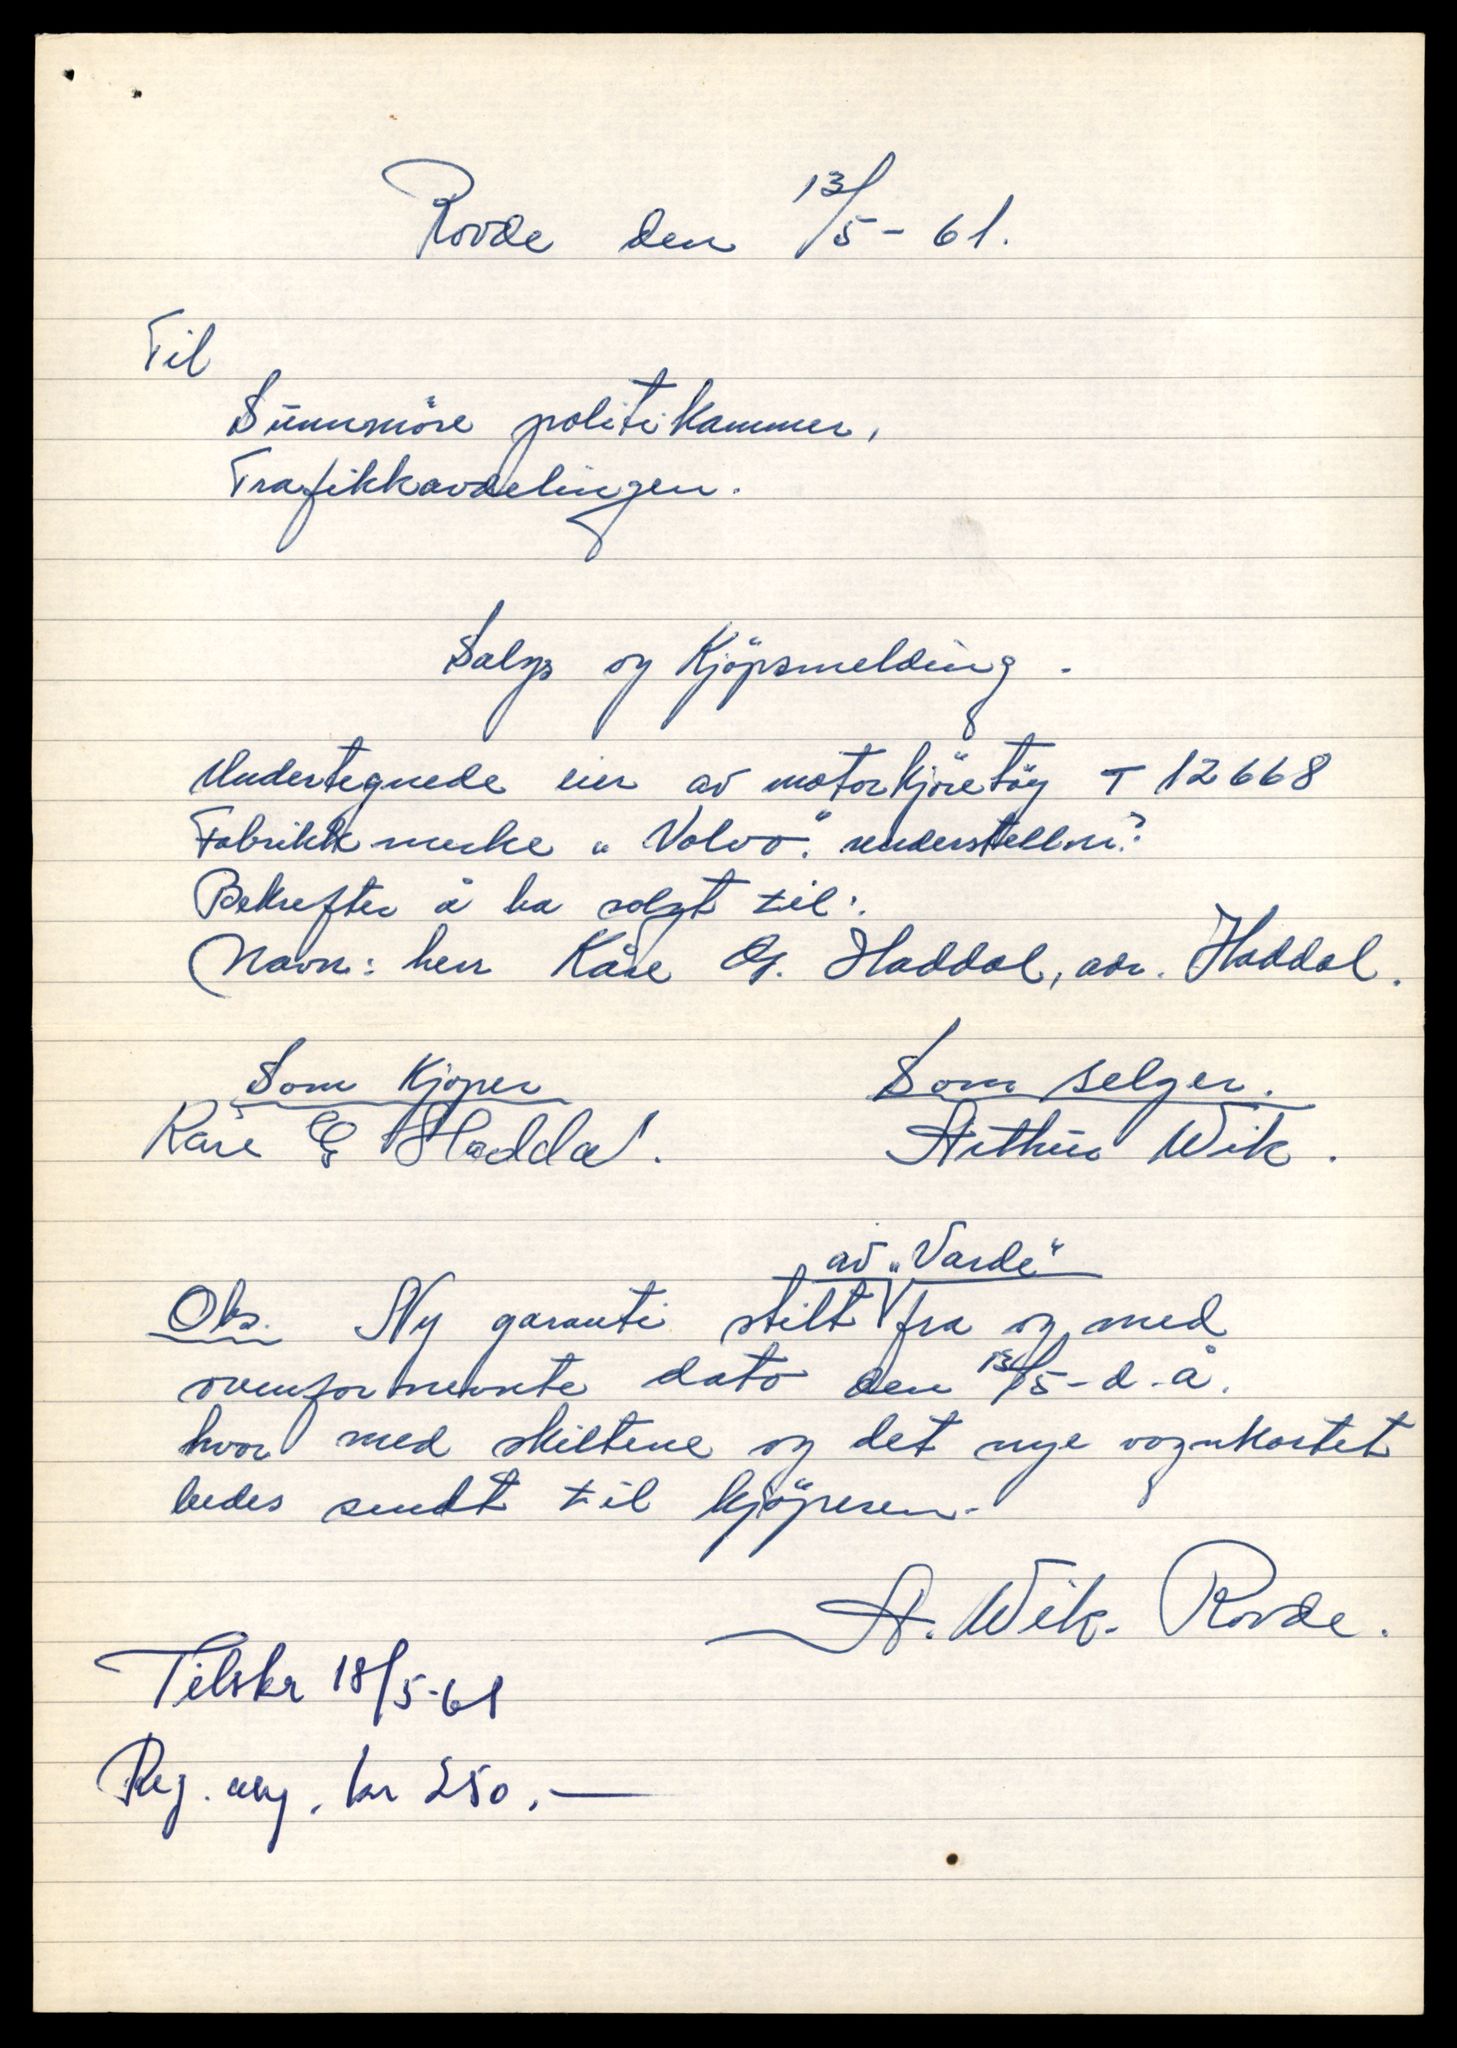 Rovde den 13/5 - 61.
Til
Sunnmöre politikammer,
Trafikkavdelingen.
Salgs og Kjöpsmelding.
Undertegnede eier av motorkjöretöy T 12668
Fabrikk merke „Volvo“. understell nr?
Bekrefter å ha solgt til:
Navn: herr Kåre G. Haddal, adr. Haddal.
Som Kjöper
Som selger.
Kåre G Haddal.
Arthur Wik.
av „Varde“
Obs. Ny garanti stilt fra og med
ovenfornevnte dato den 13/5 - d. å.
hvor med skiltene og det nye vognkortet
bedes sendt til kjöperen.
A. Wik. Rovde.
Tilskr 18/5-61
Reg. avg. kr 250.—